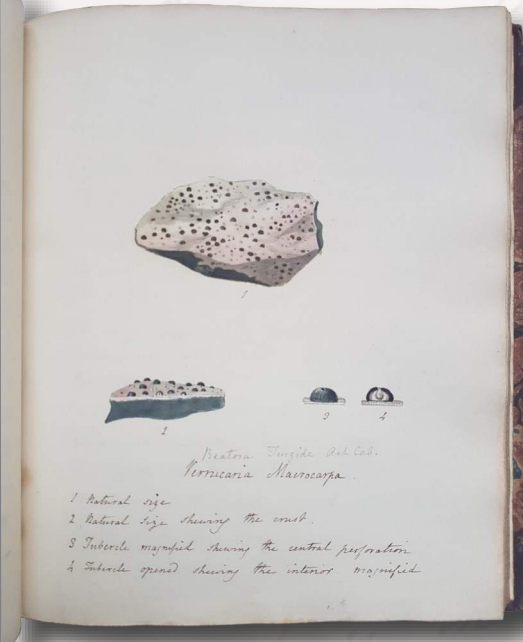 1
2
3
4
Turgida
Verrucaria Macrocarpa.
1 Natural size
2 Natural size shewing the crust.
3 Tubercle magnified shewing the central perforation
4 Tubercle opened shewing the interior magnified